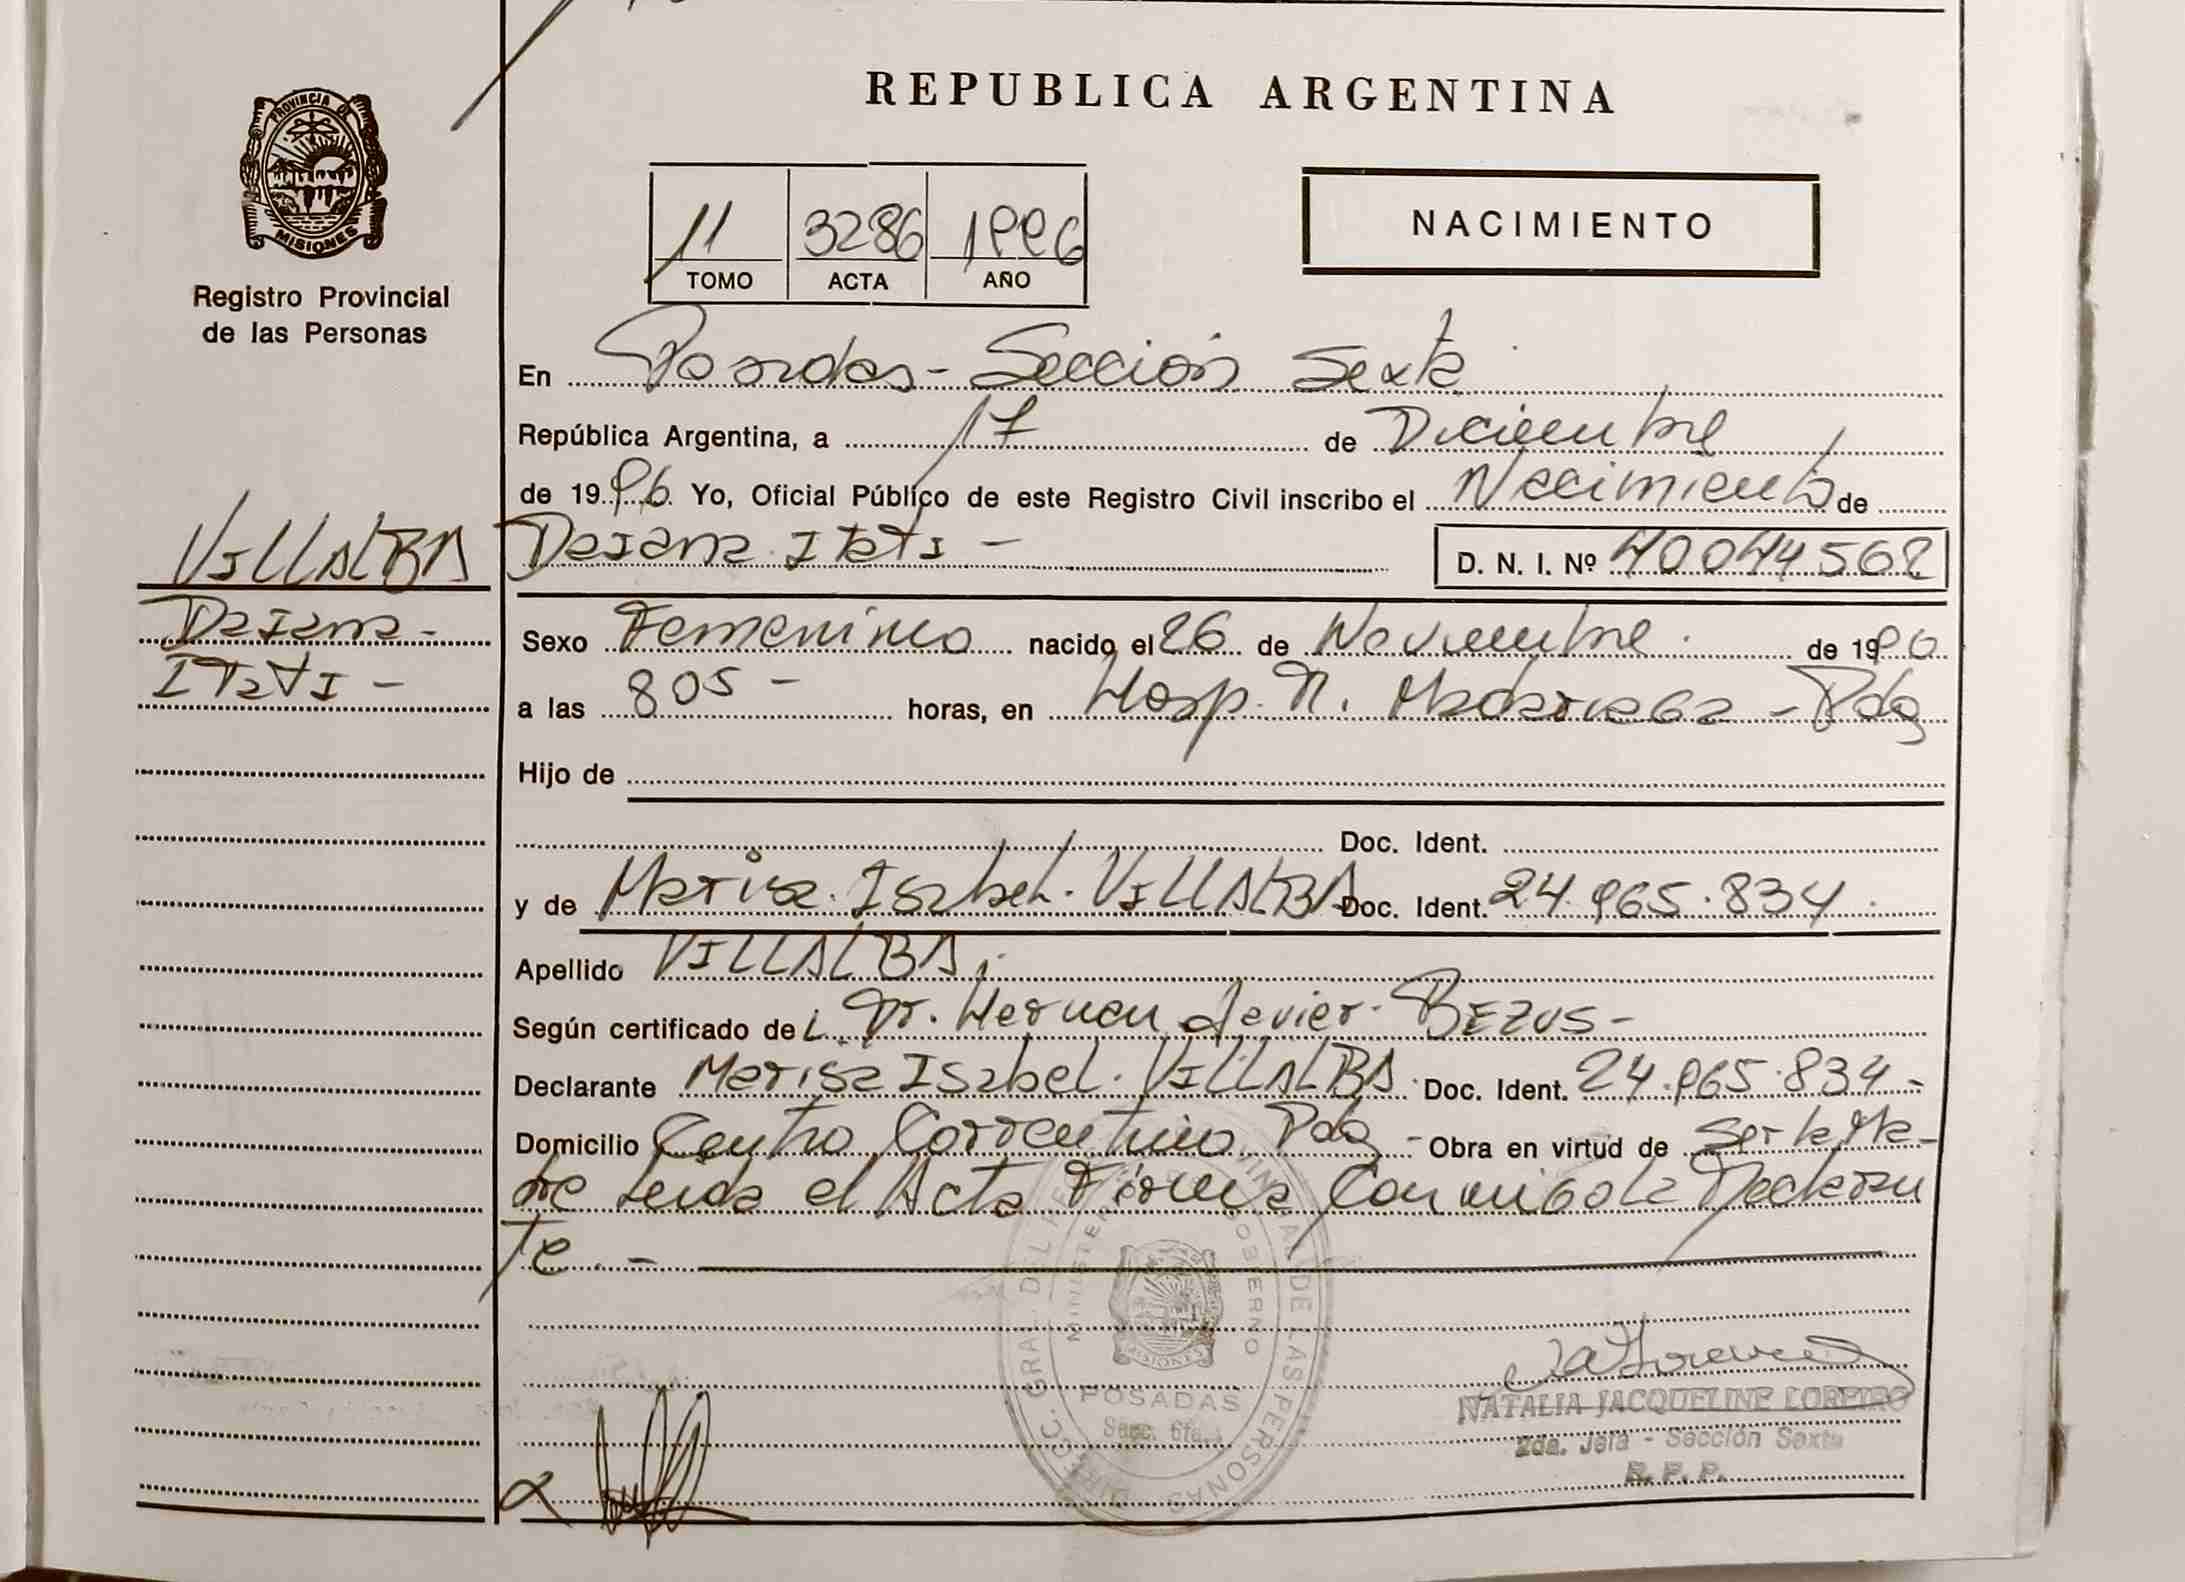 REPUBLICA ARGENTINA
PROVINCIA DE
MISIONES
Registro Provincial
de las Personas
11 3286 1996
TOMO ACTA AÑO
NACIMIENTO
En Posadas - Sección Sexta
República Argentina, a 17 de Diciembre
de 1996 Yo, Oficial Público de este Registro Civil inscribo el Nacimiento de
VILLALBA
Daiana Itatí -
Daiana Itatí -
D. N. I. Nº 40044562
Sexo Femenino nacido el 26 de Noviembre de 1996
a las 805 - horas, en Hosp. R. Madariaga - Pdas
Hijo de
Doc. Ident.
y de Marisa Isabel VILLALBA Doc. Ident. 24.965.834
Apellido VILLALBA
Según certificado del Dr. Hernan Javier BEZUS -
Declarante Marisa Isabel VILLALBA Doc. Ident. 24.965.834 -
Domicilio Centro Correntino Pdas - Obra en virtud de Ser la Ma-
dre Leida el Acta Firma Conmigo la Declaran
te. -
DIRECC. GRAL. DE LAS PERSONAS
GOBIERNO
MISIONES
POSADAS
Secc. 6ta.
NATALIA JACQUELINE LOREIRO
2da. Jefa - Sección Sexta
R. P. P.